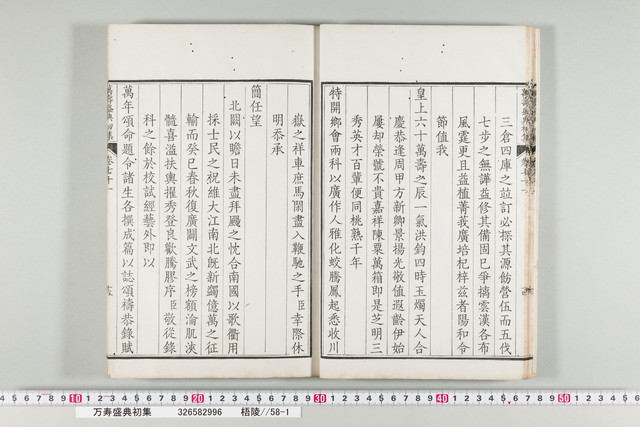 三倉四庫之竝訂必探其源飭營伍而五伐
七步之無譁益修其備固已爭摛雲漢各布
風霆更且益植菁莪廣培杞梓兹者陽和令
節值我
皇上六十萬壽之辰一氣洪鈞四時玉燭天人合
慶恭逢周甲方新卿景揚光敬值遐齡伊始
屢却榮號不貴嘉祥陳粟萬箱即是芝明三
秀英才百軰便同桃熟千年
特開鄉會兩科以廣作人雅化蛟騰鳳起悉收川
嶽之祥車庶馬閑盡入鞭馳之手臣幸際休
明忝承
簡任望
北闕以瞻日未盡拜颺之忱合南國以歌衢用
採士民之祝維大江南北旣新蠲億萬之征
輸而癸巳春秋復廣闢文武之榜額淪肌浹
髓喜溢扶輿擢秀登良歡騰膠序臣敬從錄
科之餘於校試經藝外即以
萬年頌命題令諸生各撰成篇以誌頌禱恭錄賦
萬壽盛典初集
卷七十一
万寿盛典初集
326582996
梧陵//58-1
10
20
30
40
50